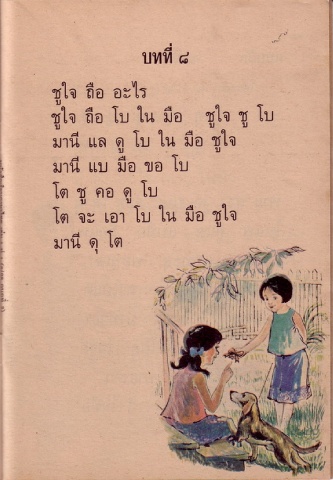 บทที่ ๘
ชูใจ ถือ อะไร
ชูใจ ถือ โบ ใน มือ ชูใจ ชู โบ
มานี แล ดู โบ ใน มือ ชูใจ
มานี แบ มือ ขอ โบ
โต ชู คอ ดู โบ
โต จะ เอา โบ ใน มือ ชูใจ
มานี ดุ โต